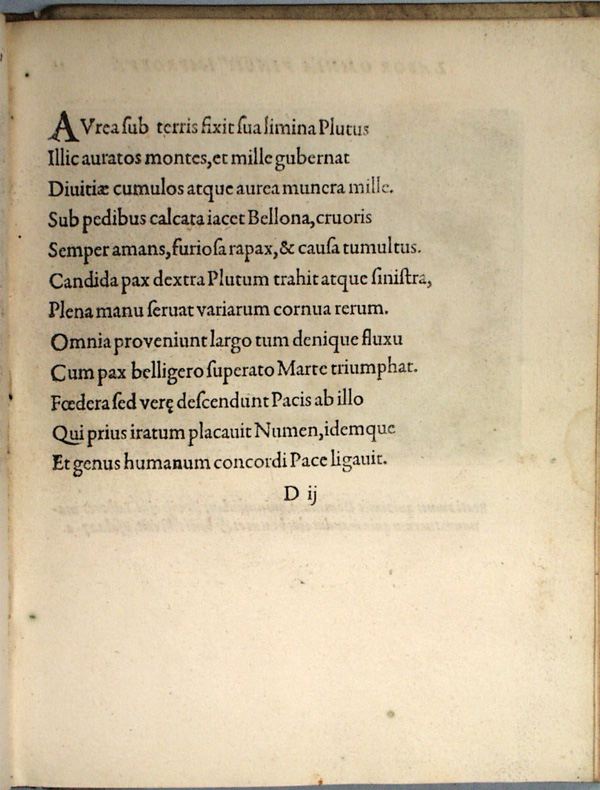 AVrea ſub terris fixit ſua limina Plutus
Illic auratos montes, et mille gubernat
Diuitiæ cumulos atque aurea munera mille.
Sub pedibus calcata iacet Bellona, cruoris
Semper amans, furioſa rapax, & cauſa tumultus.
Candida pax dextra Plutum trahit atque ſiniſtra,
Plena manu ſeruat variarum cornua rerum.
Omnia proveniunt largo tum denique fluxu
Cum pax belligero ſuperato Marte triumphat.
Fœdera ſed verę deſcendunt Pacis ab illo
Qui prius iratum placauit Numen, idemque
Et genus humanum concordi Pace ligauit.
D ij